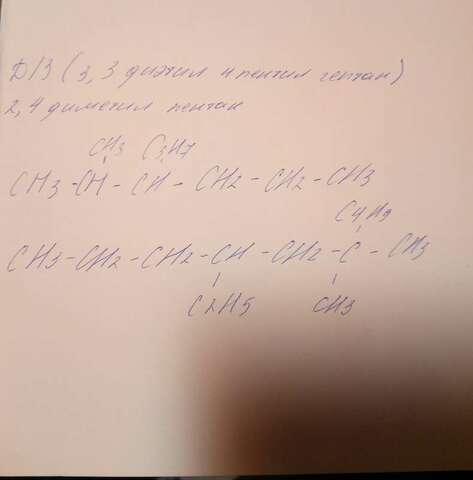 Д/З (3, 3 диэтил 4 пентил гептан)
2, 4 диметил пентан
CH3 C3H7
CH3 - CH - CH - CH2 - CH2 - CH3
C4H9
CH3 - CH2 - CH2 - CH - CH2 - C - CH3
C2H5 CH3